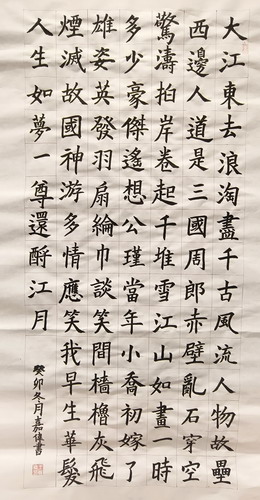 大江東去浪淘盡千古風流人物故壘
西邊人道是三國周郎赤壁亂石穿空
驚濤拍岸卷起千堆雪江山如畫一時
多少豪傑遙想公瑾當年小喬初嫁了
雄姿英發羽扇綸巾談笑間檣櫓灰飛
煙滅故國神游多情應笑我早生華髮
人生如夢一尊還酹江月
癸卯冬月嘉偉書